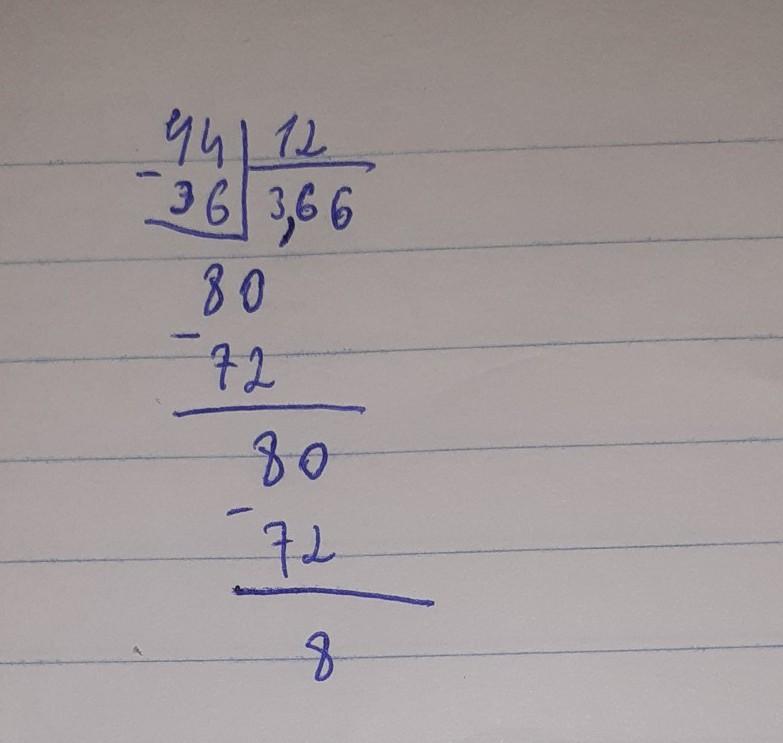 44 12
- 36 3,66
80
- 72
80
- 72
8